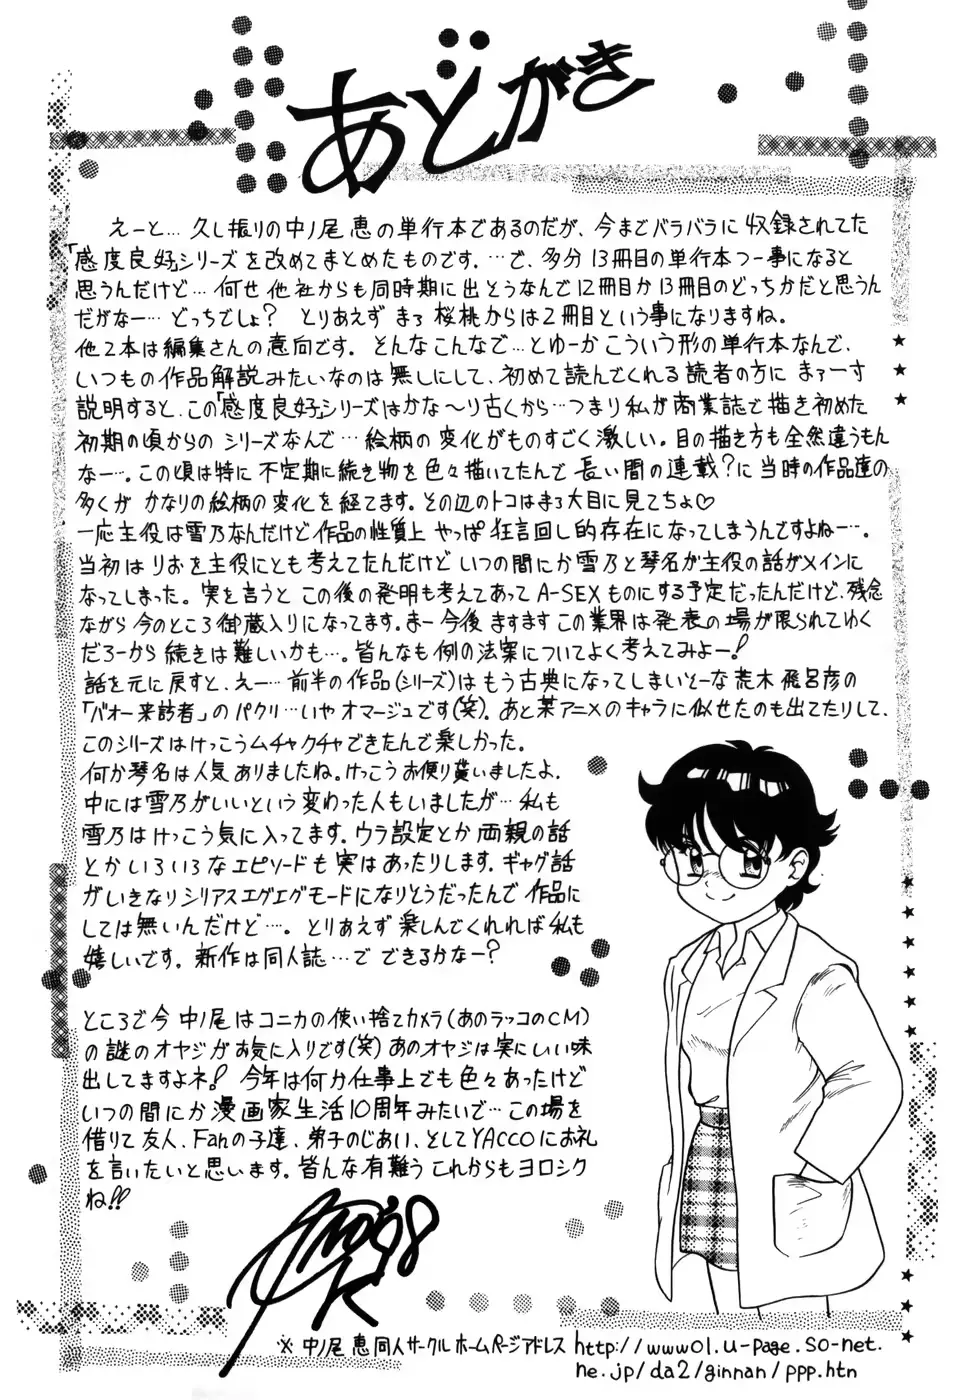 あとがき
えーと…久し振りの中ノ尾恵の単行本であるのだが、今までバラバラに収録されてた
「感度良好」シリーズを改めてまとめたものです。…で、多分13冊目の単行本つー事になると
思うんだけど…何せ他社からも同時期に出そうなんで12冊目か13冊目のどっちかだと思うん
だがなー…どっちでしょ？ とりあえずまぁ桜桃からは2冊目という事になりますね。
他2本は編集さんの意向です。そんなこんなで…とゆーかこういう形の単行本なんで、
いつもの作品解説みたいなのは無しにして、初めて読んでくれる読者の方にまぁーす
説明すると、この「感度良好」シリーズはかな〜り古くから…つまり私が商業誌で描き初めた
初期の頃からのシリーズなんで…絵柄の変化がものすごく激しい。目の描き方も全然違うもん
なー…。この頃は特に不定期に続き物を色々描いてたんで長い間の連載？に当時の作品達の
多くがかなりの絵柄の変化を経てます。その辺のトコはまぁ大目に見てちょ♡
一応主役は雪乃なんだけど作品の性質上やっぱ狂言回し的存在になってしまうんですよねー…。
当初はりおを主役にとも考えてたんだけどいつの間にか雪乃と琴名が主役の話がメインに
なってしまった。実を言うとこの後の発明も考えてあってA-SEXものにする予定だったんだけど、残念
ながら今のところ御蔵入りになってます。まー今後ますますこの業界は発表の場が限られてゆく
だろーから続きは難しいかも…。皆んなも例の法案についてよく考えてみよー！
話を元に戻すと、えー…前半の作品（シリーズ）はもう古典になってしまいそーな荒木飛呂彦の
「バオー来訪者」のパクリ…いやオマージュです（笑）。あと某アニメのキャラに似せたのも出てたりして、
このシリーズはけっこうムチャクチャできたんで楽しかった。
何か琴名は人気ありましたね。けっこうお便り貰いましたよ。
中には雪乃がいいという変わった人もいましたが…私も
雪乃はけっこう気に入ってます。ウラ設定とか両親の話
とかいろいろなエピソードも実はあったりします。ギャグ話
がいきなりシリアスエグエグモードになりそうだったんで作品に
しては無いんだけど…。とりあえず楽しんでくれれば私も
嬉しいです。新作は同人誌…でできるかなー？
ところで今中ノ尾はコニカの使い捨てカメラ（あのラッコのCM）
の謎のオヤジがお気に入りです（笑）あのオヤジは実にいい味
出してますよネ！今年は何か仕事上でも色々あったけど
いつの間にか漫画家生活10周年みたいで…この場を
借りて友人、Fanの子達、弟子のじあい、そしてYACCOにお礼
を言いたいと思います。皆んな有難うこれからもヨロシク
ね!!
'98
※ 中ノ尾 恵同人サークルホームページアドレス http://www01.u-page.so-net.
ne.jp/da2/ginnan/ppp.htn